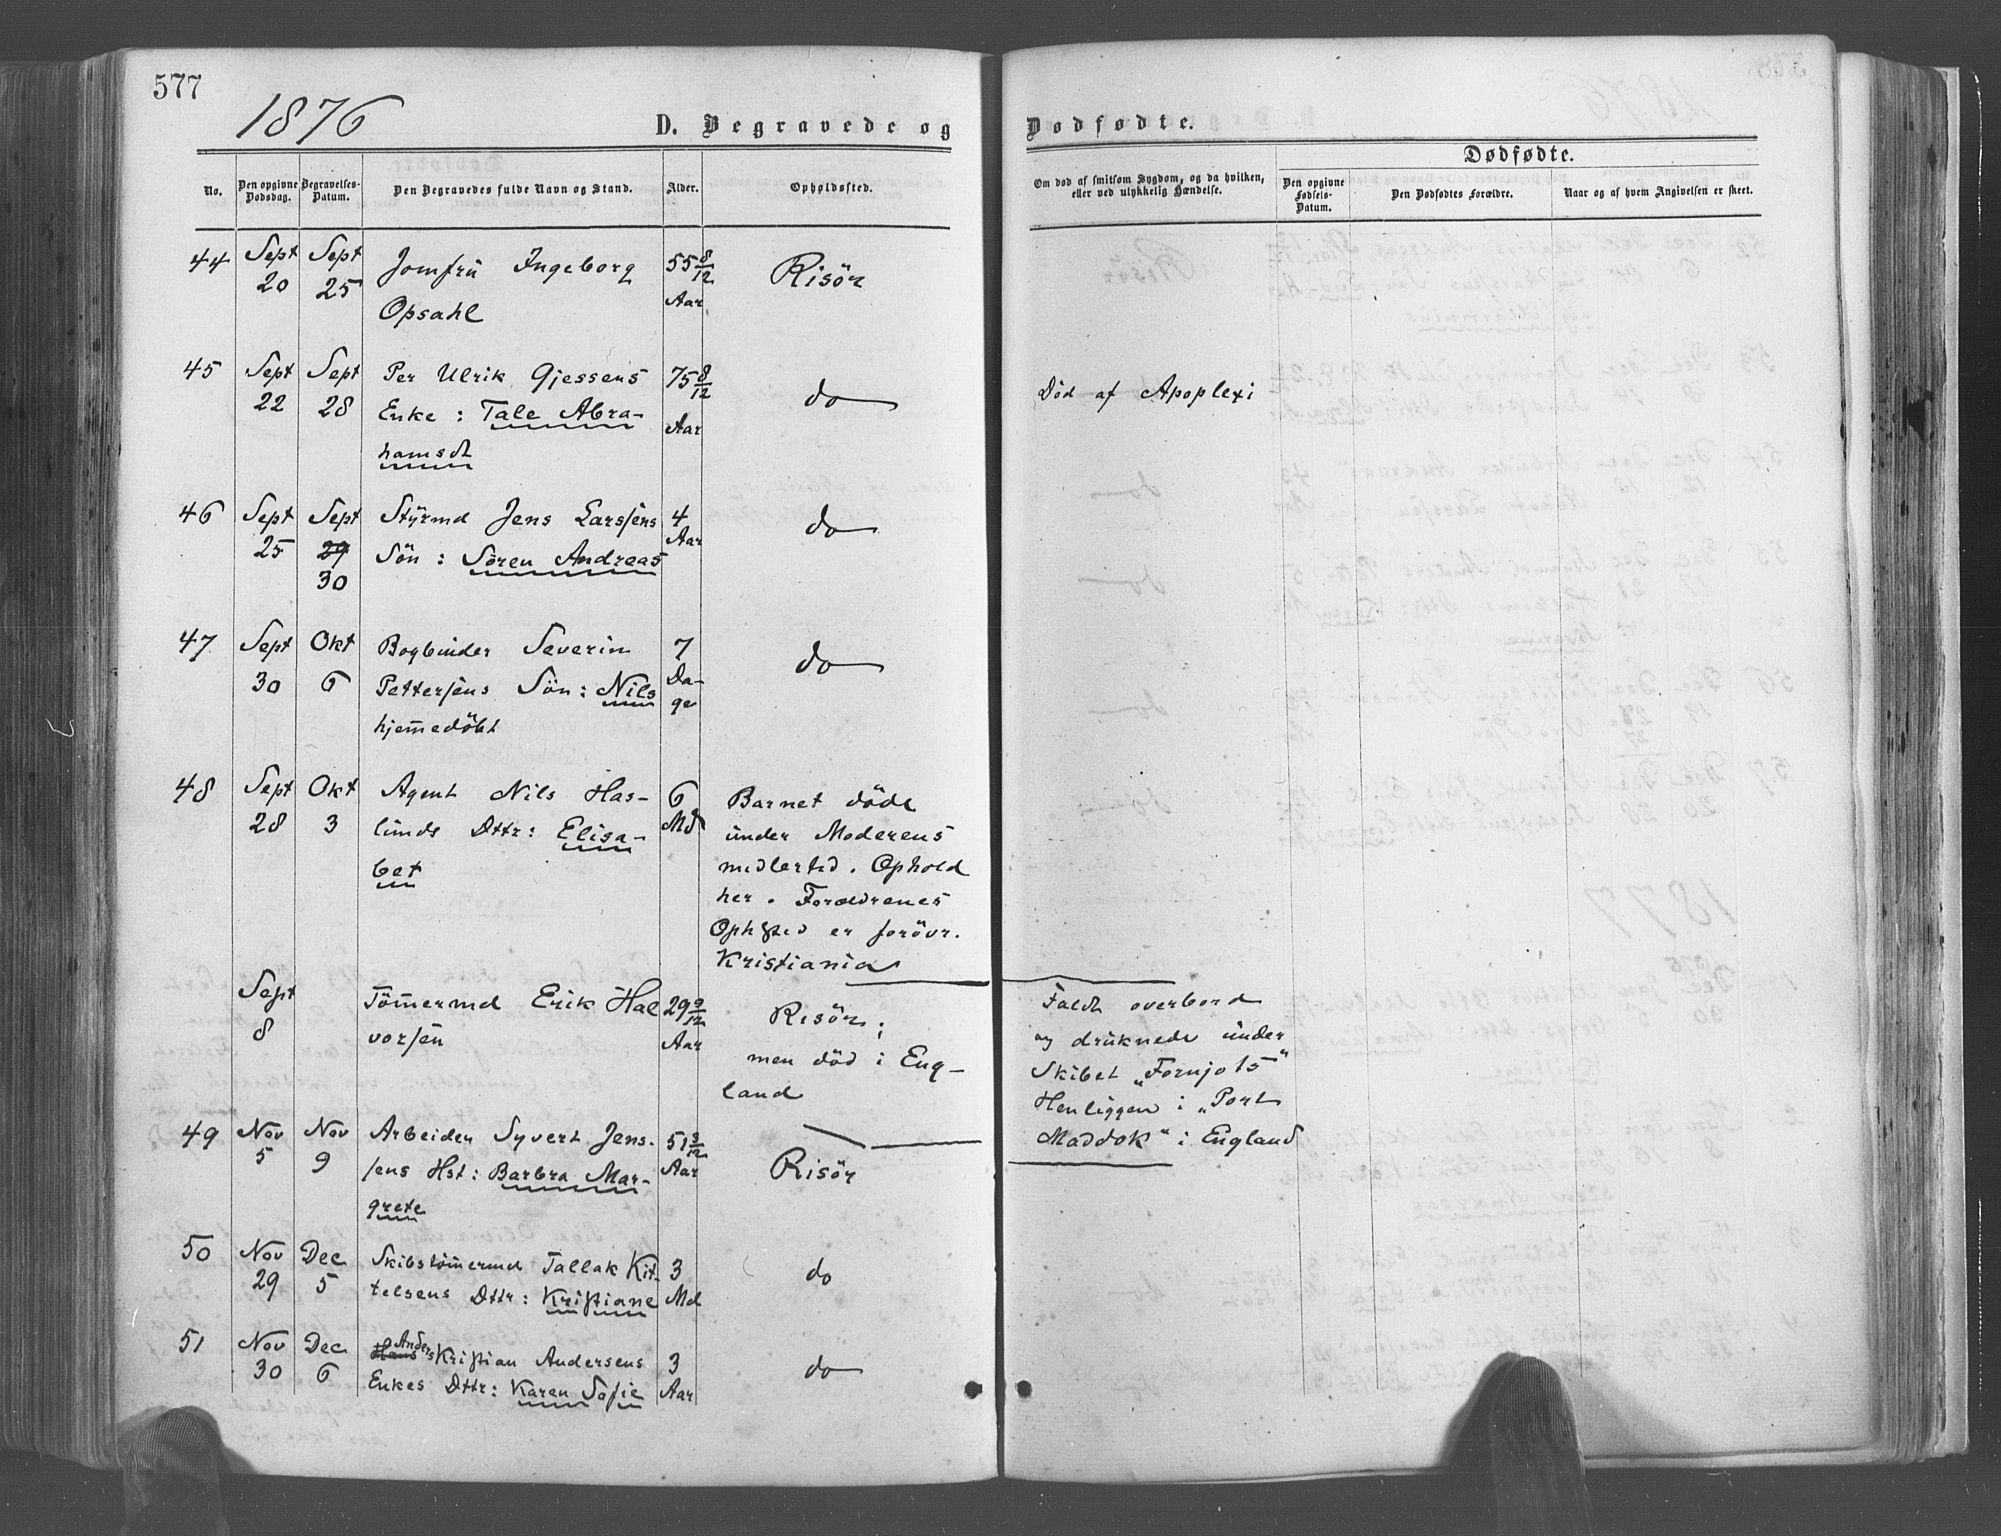 577
1876
D. Begravede og Dødfødte.
Dødfødte.
No.
Den opgivne Dødsdag.
Begravelses-Datum.
Den Begravedes fulde Navn og Stand.
Alder.
Opholdssted.
Om død af smitsom Sygdom, og da hvilken,
eller ved ulykkelig Hændelse.
Den opgivne Fødsels-Datum.
Den Dødfødtes Forældre.
Naar og af hvem Angivelsen er skeet.
44 Sept 20 Sept 25
Jomfru Ingeborg
Opsahl
55 8/12 Aar
Risör
45 Sept 22 Sept 28
Per Ulrik Gjessens
Enke: Tale Abra-
hamsdt
75 8/12 Aar
do
Död af Apoplexi
46 Sept 25 Sept 29 30
Styrmd Jens Larssens
Sön: Sören Andreas
4 Aar
do
47 Sept 30 Okt 6
Bogbinder Severin
Pettersens Sön: Nils
hjemmedöbt
7 Da-
ge
do
48 Sept 28 Okt 3
Agent Nils Has-
lunds Dttr: Elisa-
bet
6 Md
Barnet döde
under Moderens
midlertid. Ophold
her. Forældrenes
Ophsted er forövr.
Kristiania
Sept 8
Tömmermd Erik Hal
vorsen
29 9/12 Aar
Risör;
men död i Eng-
land
Faldt overbord
og druknede under
Skibet „Fornjots"
Henliggen i „Port
Maddok" i England
49 Nov 5 Nov 9
Arbeider Syvert Jens-
sens Hst: Barbra Mar-
grete
51 3/12 Aar
Risör
50 Nov 29 Dec 5
Skibstömmermd Tallak Kit-
telsens Dttr: Kristiane
3 Md
do
51 Nov 30 Dec 6
Hans Anders Kristian Andersens
Enkes Dttr: Karen Sofie
3 Aar
do